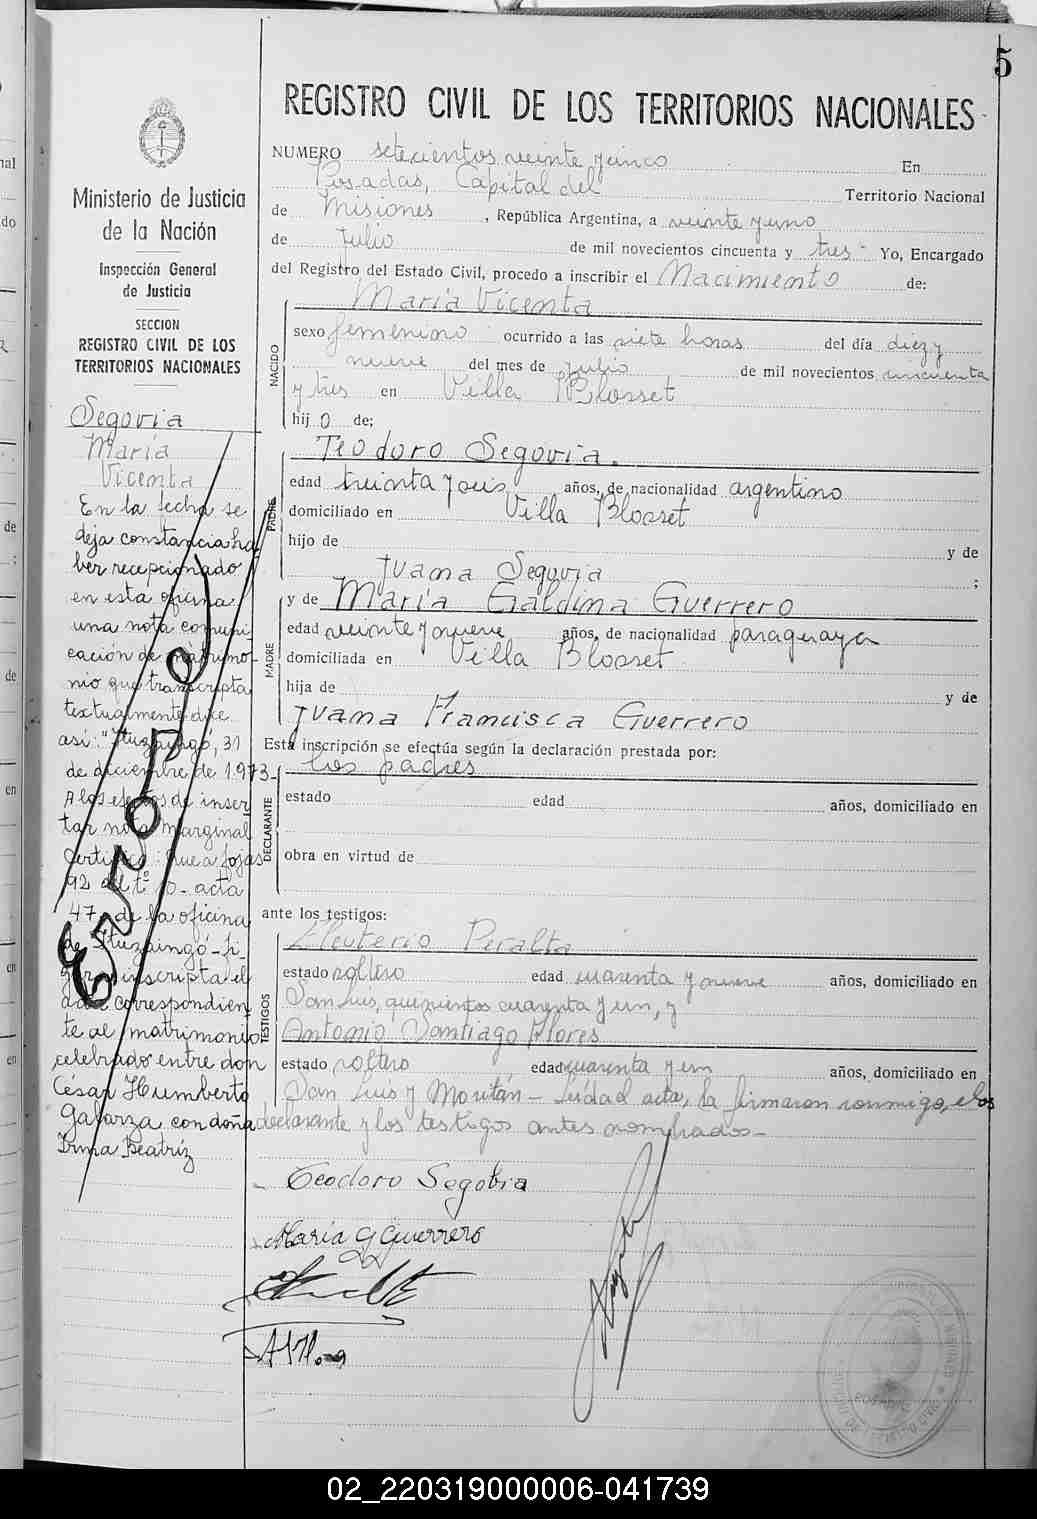 5
REGISTRO CIVIL DE LOS TERRITORIOS NACIONALES
NUMERO setecientos veinte y cinco En
Posadas, Capital del Territorio Nacional
de Misiones, República Argentina, a veinte y uno
de Julio de mil novecientos cincuenta y tres - Yo, Encargado
del Registro del Estado Civil, procedo a inscribir el Nacimiento de:
NACIDO
María Vicenta
sexo femenino ocurrido a las siete horas del día diez y
nueve del mes de julio de mil novecientos cincuenta
y tres en Villa Blosset
hij o de;
PADRE
Teodoro Segovia.
edad treinta y seis años, de nacionalidad argentino
domiciliado en Villa Blosset
hijo de y de
Juana Segovia ;
MADRE
y de María Galdina Guerrero
edad veinte y nueve años, de nacionalidad paraguaya
domiciliada en Villa Blosset
hija de y de
Juana Francisca Guerrero
Esta inscripción se efectúa según la declaración prestada por:
DECLARANTE
los padres
estado edad años, domiciliado en
obra en virtud de
ante los testigos:
TESTIGOS
Eleuterio Peralta
estado soltero edad cuarenta y nueve años, domiciliado en
San Luis, quinientos cuarenta y un, y
Antonio Santiago Flores
estado soltero edad cuarenta y un años, domiciliado en
San Luis y Moritán - Leída el acta, la firmaron conmigo, los
declarante y los testigos antes nombrados -
Teodoro Segobia
María G Guerrero
Ministerio de Justicia
de la Nación
Inspección General
de Justicia
SECCION
REGISTRO CIVIL DE LOS
TERRITORIOS NACIONALES
Segovia
María
Vicenta
En la fecha se
deja constancia ha
ber recepcionado
en esta oficina
una nota comuni
cación de matrimo-
nio que transcripta
textualmente dice
así: "Ituzaingó, 31
de diciembre de 1973-
A los efectos de inser
tar nota marginal
Certifico: Que a fojas
92 del tº acta
47, de la oficina
de Ituzaingó - fi-
gura inscripta el
acta correspondien
te al matrimonio
celebrado entre don
César Humberto
Galarza con doña
Irma Beatríz
Errose
02_220319000006-041739